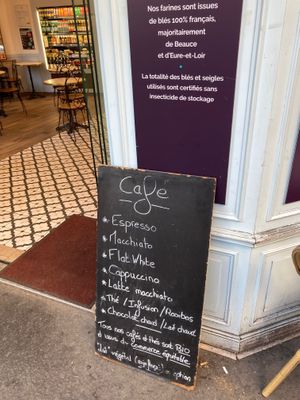 Nos farines sont issues
de blés 100% français,
majoritairement
de Beauce
et d'Eure-et-Loir
La totalité des blés et seigles
utilisés sont certifiés sans
insecticide de stockage
Café
Espresso
Macchiato
Flat White
Cappuccino
Latte macchiato
Thé / Infusion / Rooibos
Chocolat chaud / Lait chaud
Tous nos cafés et thés sont BIO
et issus du commerce équitable
"Lait" végétal en option